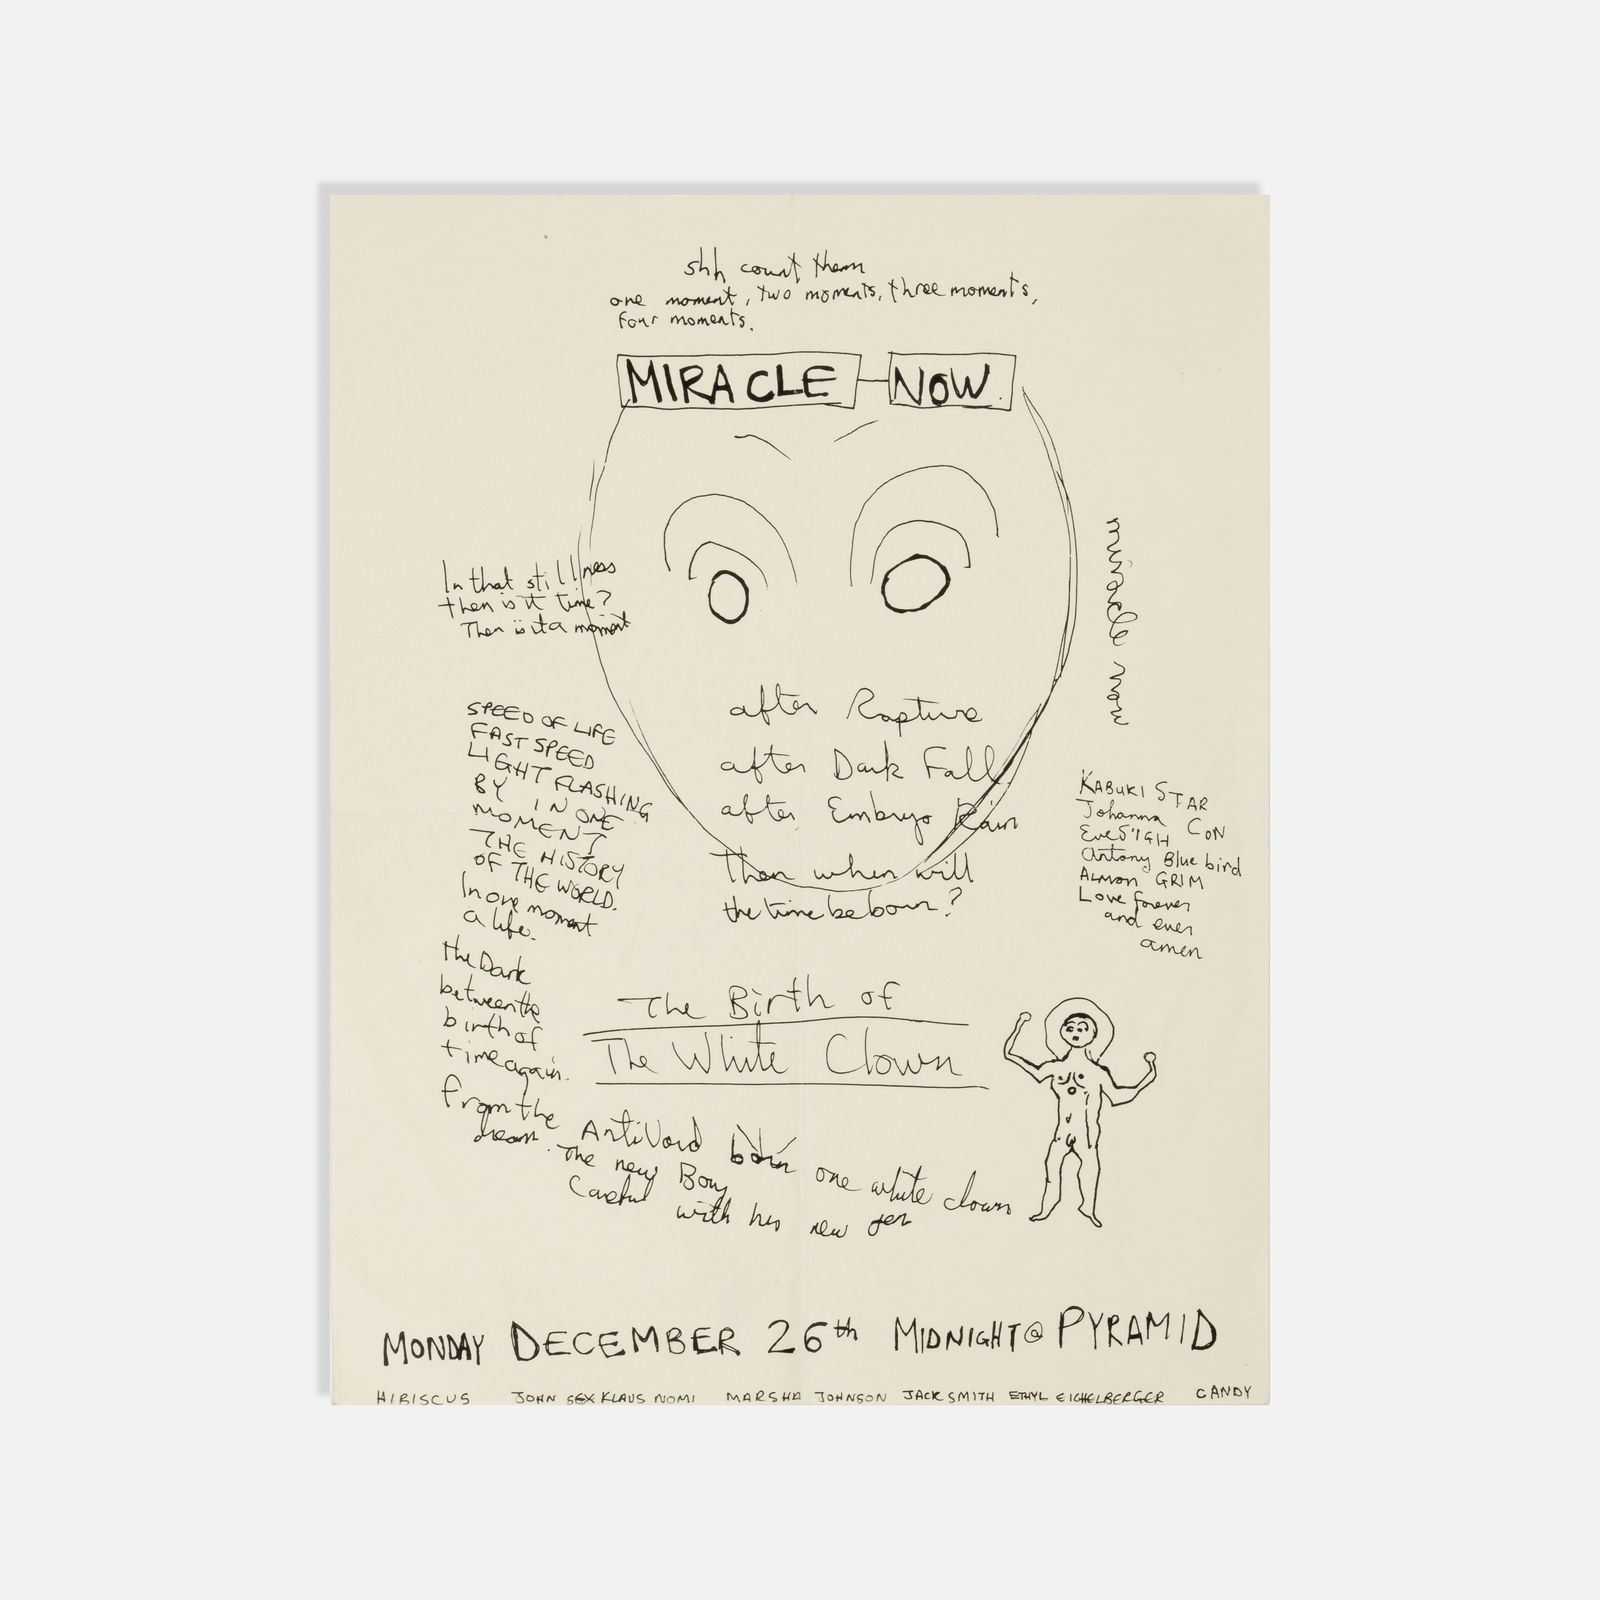 shh count them
one moment, two moments, three moments,
four moments.
MIRACLE NOW.
In that stillness
then is it time?
Then is it a moment
miracle now
after Rapture
after Dark Fall
after Embryo Rain
Then when will
the time be born?
SPEED OF LIFE
FAST SPEED
LIGHT FLASHING
BY IN ONE
MOMENT
THE HISTORY
OF THE WORLD.
In one moment
a life.
the Dark
between the
birth of
time again.
from the
dream.
KABUKI STAR
Johanna CON
Eve S'IGH
Antony Blue bird
ALMON GRIM
Love forever
and ever
amen
The Birth of
The White Clown
AntiVoid born one white clown
The new Boy
Careful with his new
MONDAY DECEMBER 26th MIDNIGHT @ PYRAMID
HIBISCUS JOHN SEX KLAUS NOMI MARSHA JOHNSON JACK SMITH ETHYL EICHELBERGER CANDY